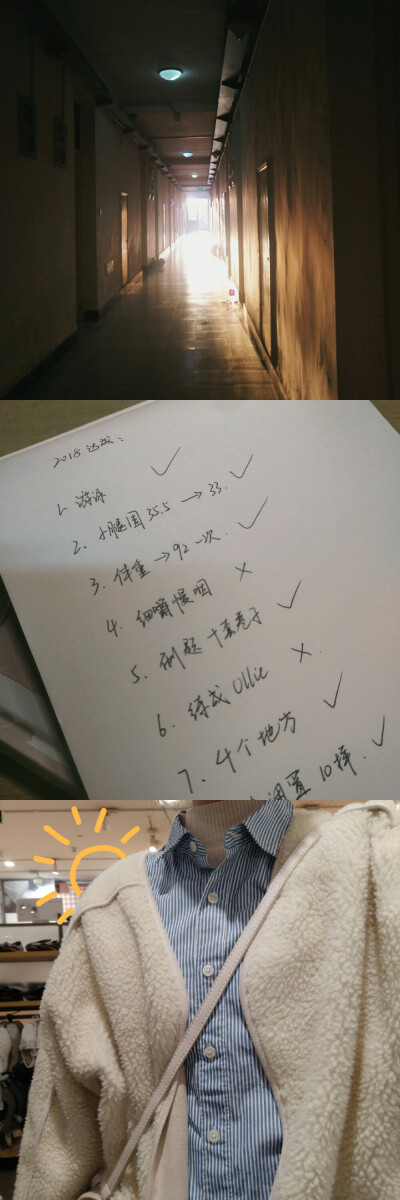 2018 达成：
1. 游泳 ✓
2. 小腿围 35.5 → 33. ✓
3. 体重 → 92 一次. ✓
4. 细嚼慢咽 ×
5. 刷题 十套卷子 ✓
6. 练成 Ollie ×.
7. 4个地方 ✓
置 10样. ✓